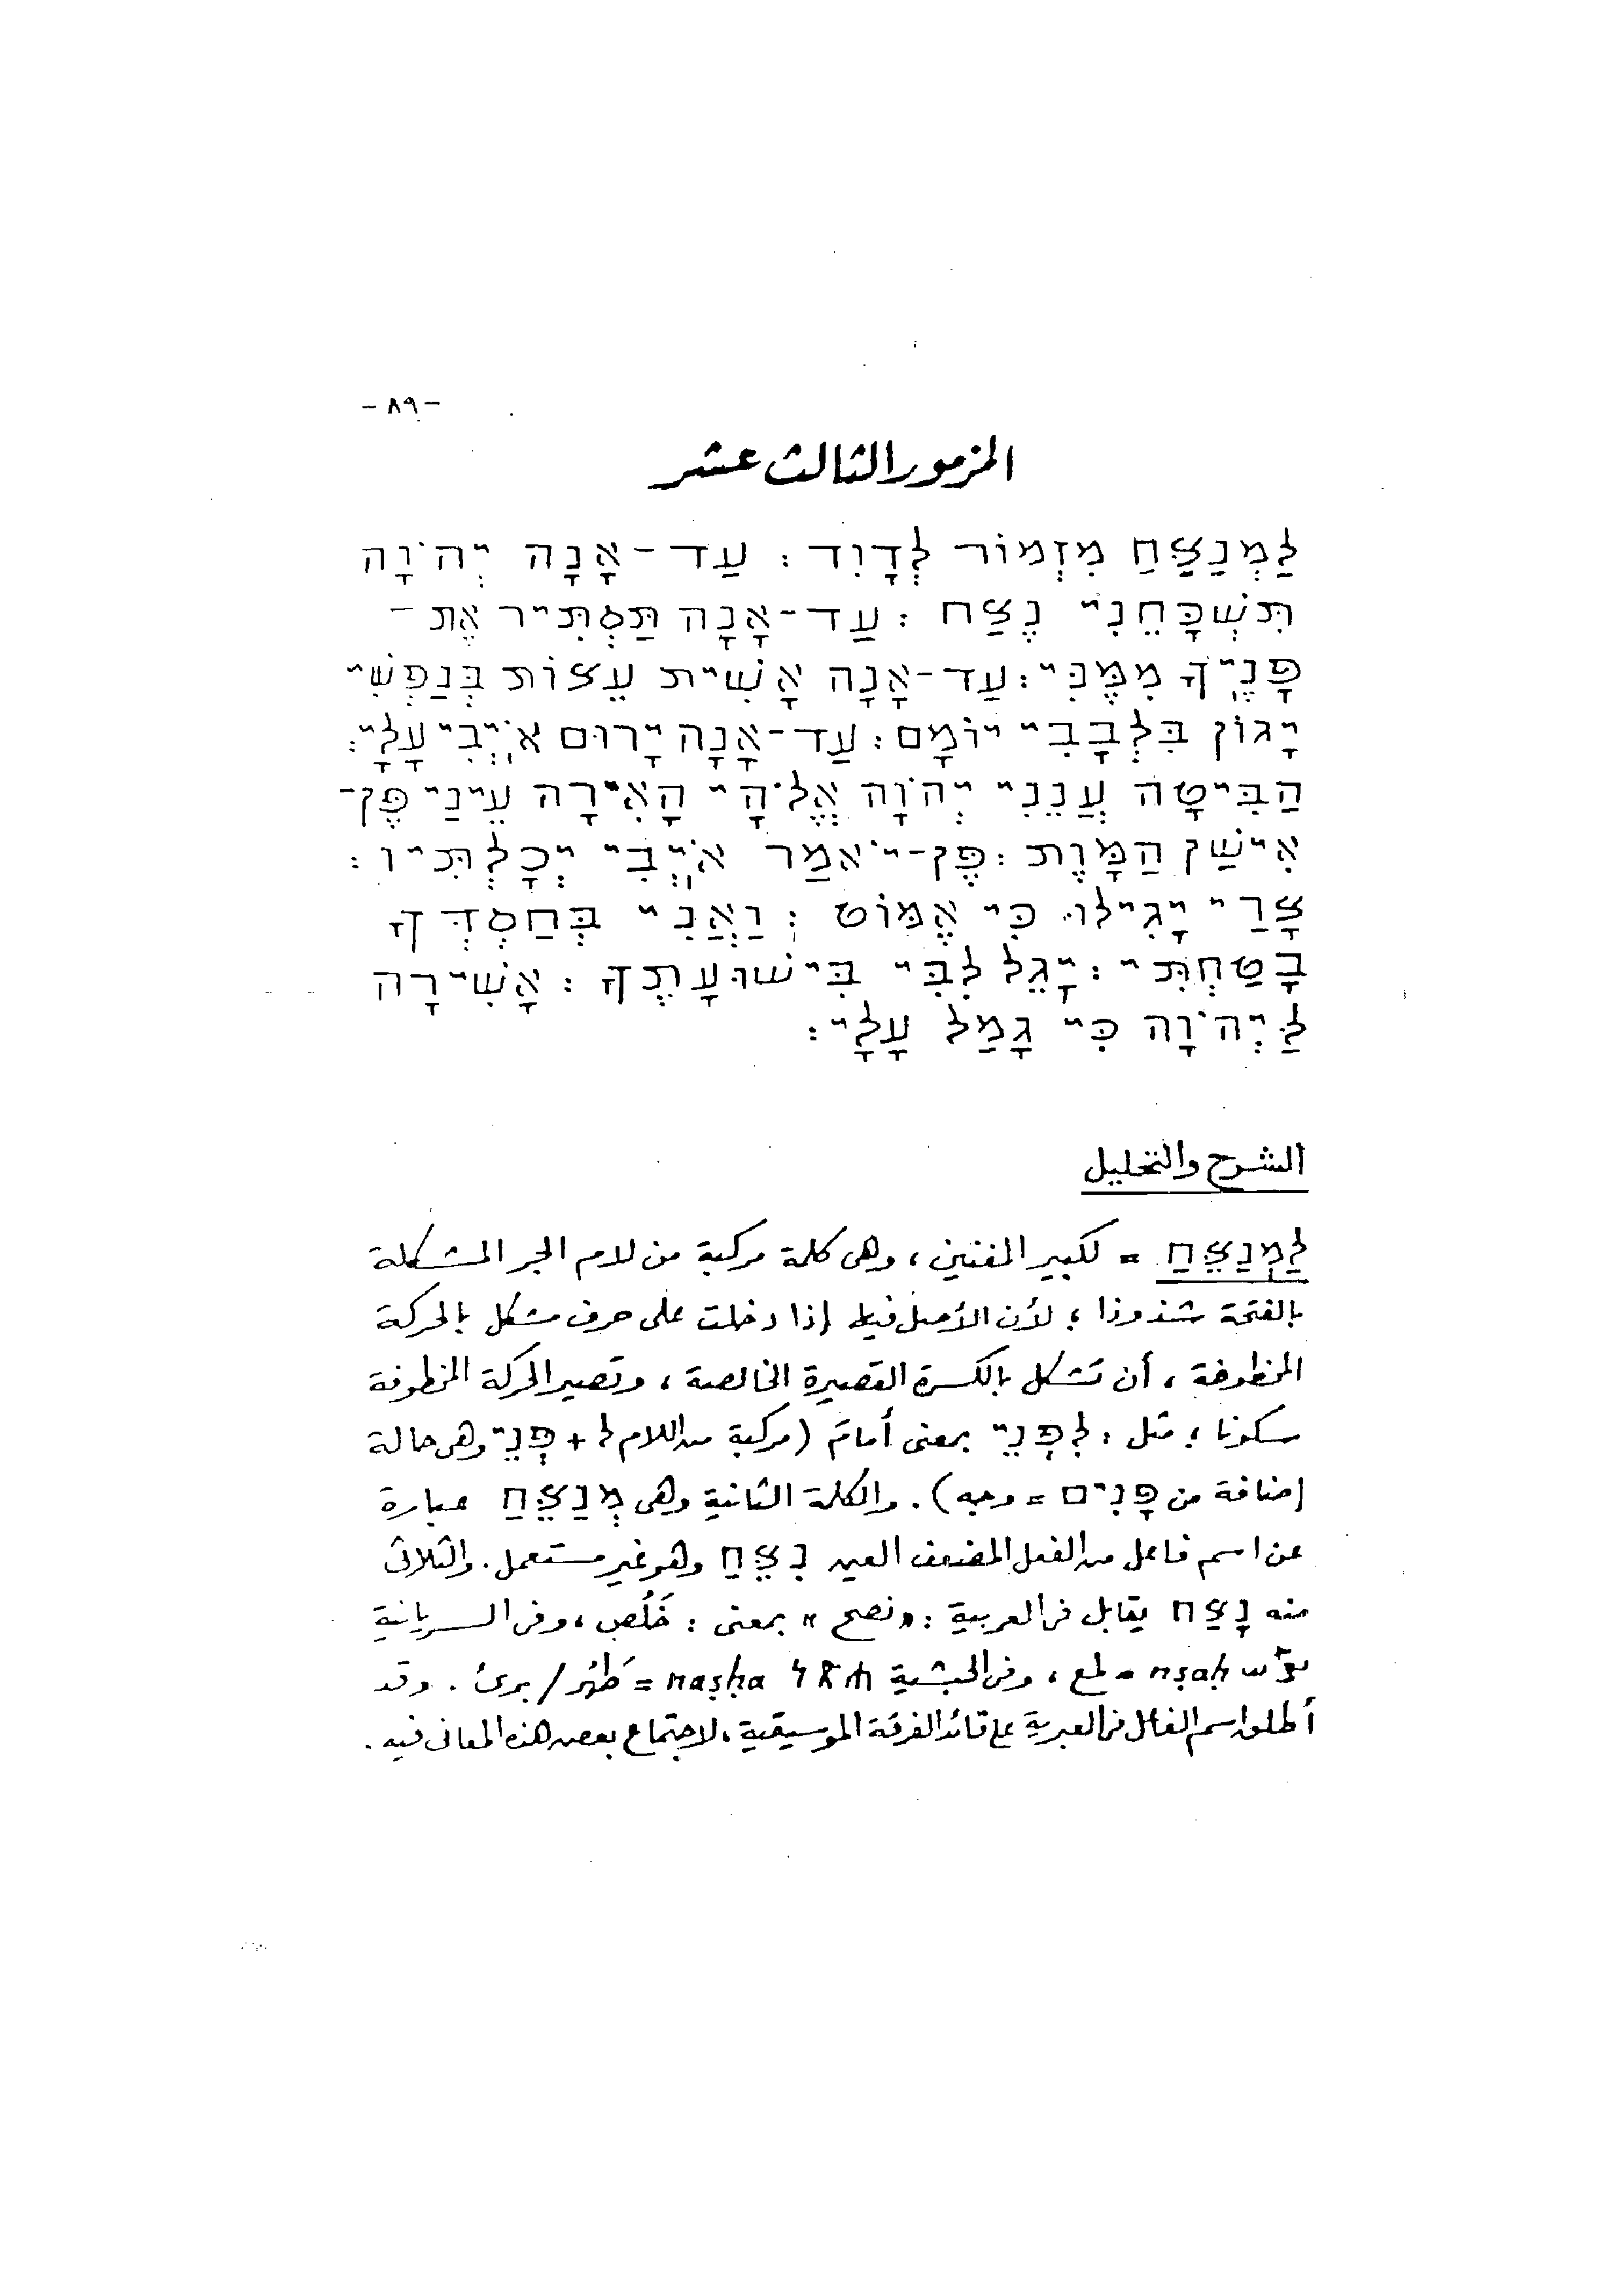 -٨٩-
المزمور الثالث عشر
לַמְנַצֵּחַ מִזְמוֹר לְדָוִד : עַד-אָנָה יְהֹוָה
תִּשְׁכָּחֵנִי נֶצַח : עַד-אָנָה תַּסְתִּיר אֶת-
פָּנֶיךָ מִמֶּנִּי : עַד-אָנָה אָשִׁית עֵצוֹת בְּנַפְשִׁי
יָגוֹן בִּלְבָבִי יוֹמָם : עַד-אָנָה יָרוּם אֹיְבִי עָלָי :
הַבִּיטָה עֲנֵנִי יְהֹוָה אֱלֹהָי הָאִירָה עֵינַי פֶּן-
אִישַׁן הַמָּוֶת : פֶּן-יֹאמַר אֹיְבִי יְכָלְתִּיו :
צָרַי יָגִילוּ כִּי אֶמּוֹט : וַאֲנִי בְּחַסְדְּךָ
בָטַחְתִּי : יָגֵל לִבִּי בִּישׁוּעָתֶךָ : אָשִׁירָה
לַיְהֹוָה כִּי גָמַל עָלָי :
الشرح والتحليل
לַמְנַצֵּחַ = لكبير المغنين ، وهى كلمة مركبة من لام الجر المشكلة
بالفتحة شذوذا ؛ لأن الأصل فيها إذا دخلت على حرف مشكل بالحركة
المخطوفة ، أن تشكل بالكسرة القصيرة الخالصة ، وتصير الحركة المخطوفة
سكونا ؛ مثل : לִפְנֵי بمعنى أمامَ (مركبة من اللام ל + פְּנֵי وهى حالة
إضافة من פָּנִים = وجه) . والكلمة الثانية وهى מְנַצֵּחַ عبارة
عن اسم فاعل من الفعل المضعف العين נִצֵּחַ وهو غير مستعمل . والثلاثى
منه נָצַח يقابل فى العربية : «نصح» بمعنى : خَلُص ، وفى السريانية
nṣaḥ = لمع ، وفى الحبشية ነጽሐ naṣḥa = طَهُر / برئ . وقد
أطلق اسم الفاعل فى العبرية على قائد الفرقة الموسيقية ، لاجتماع بعض هذه المعانى فيه .